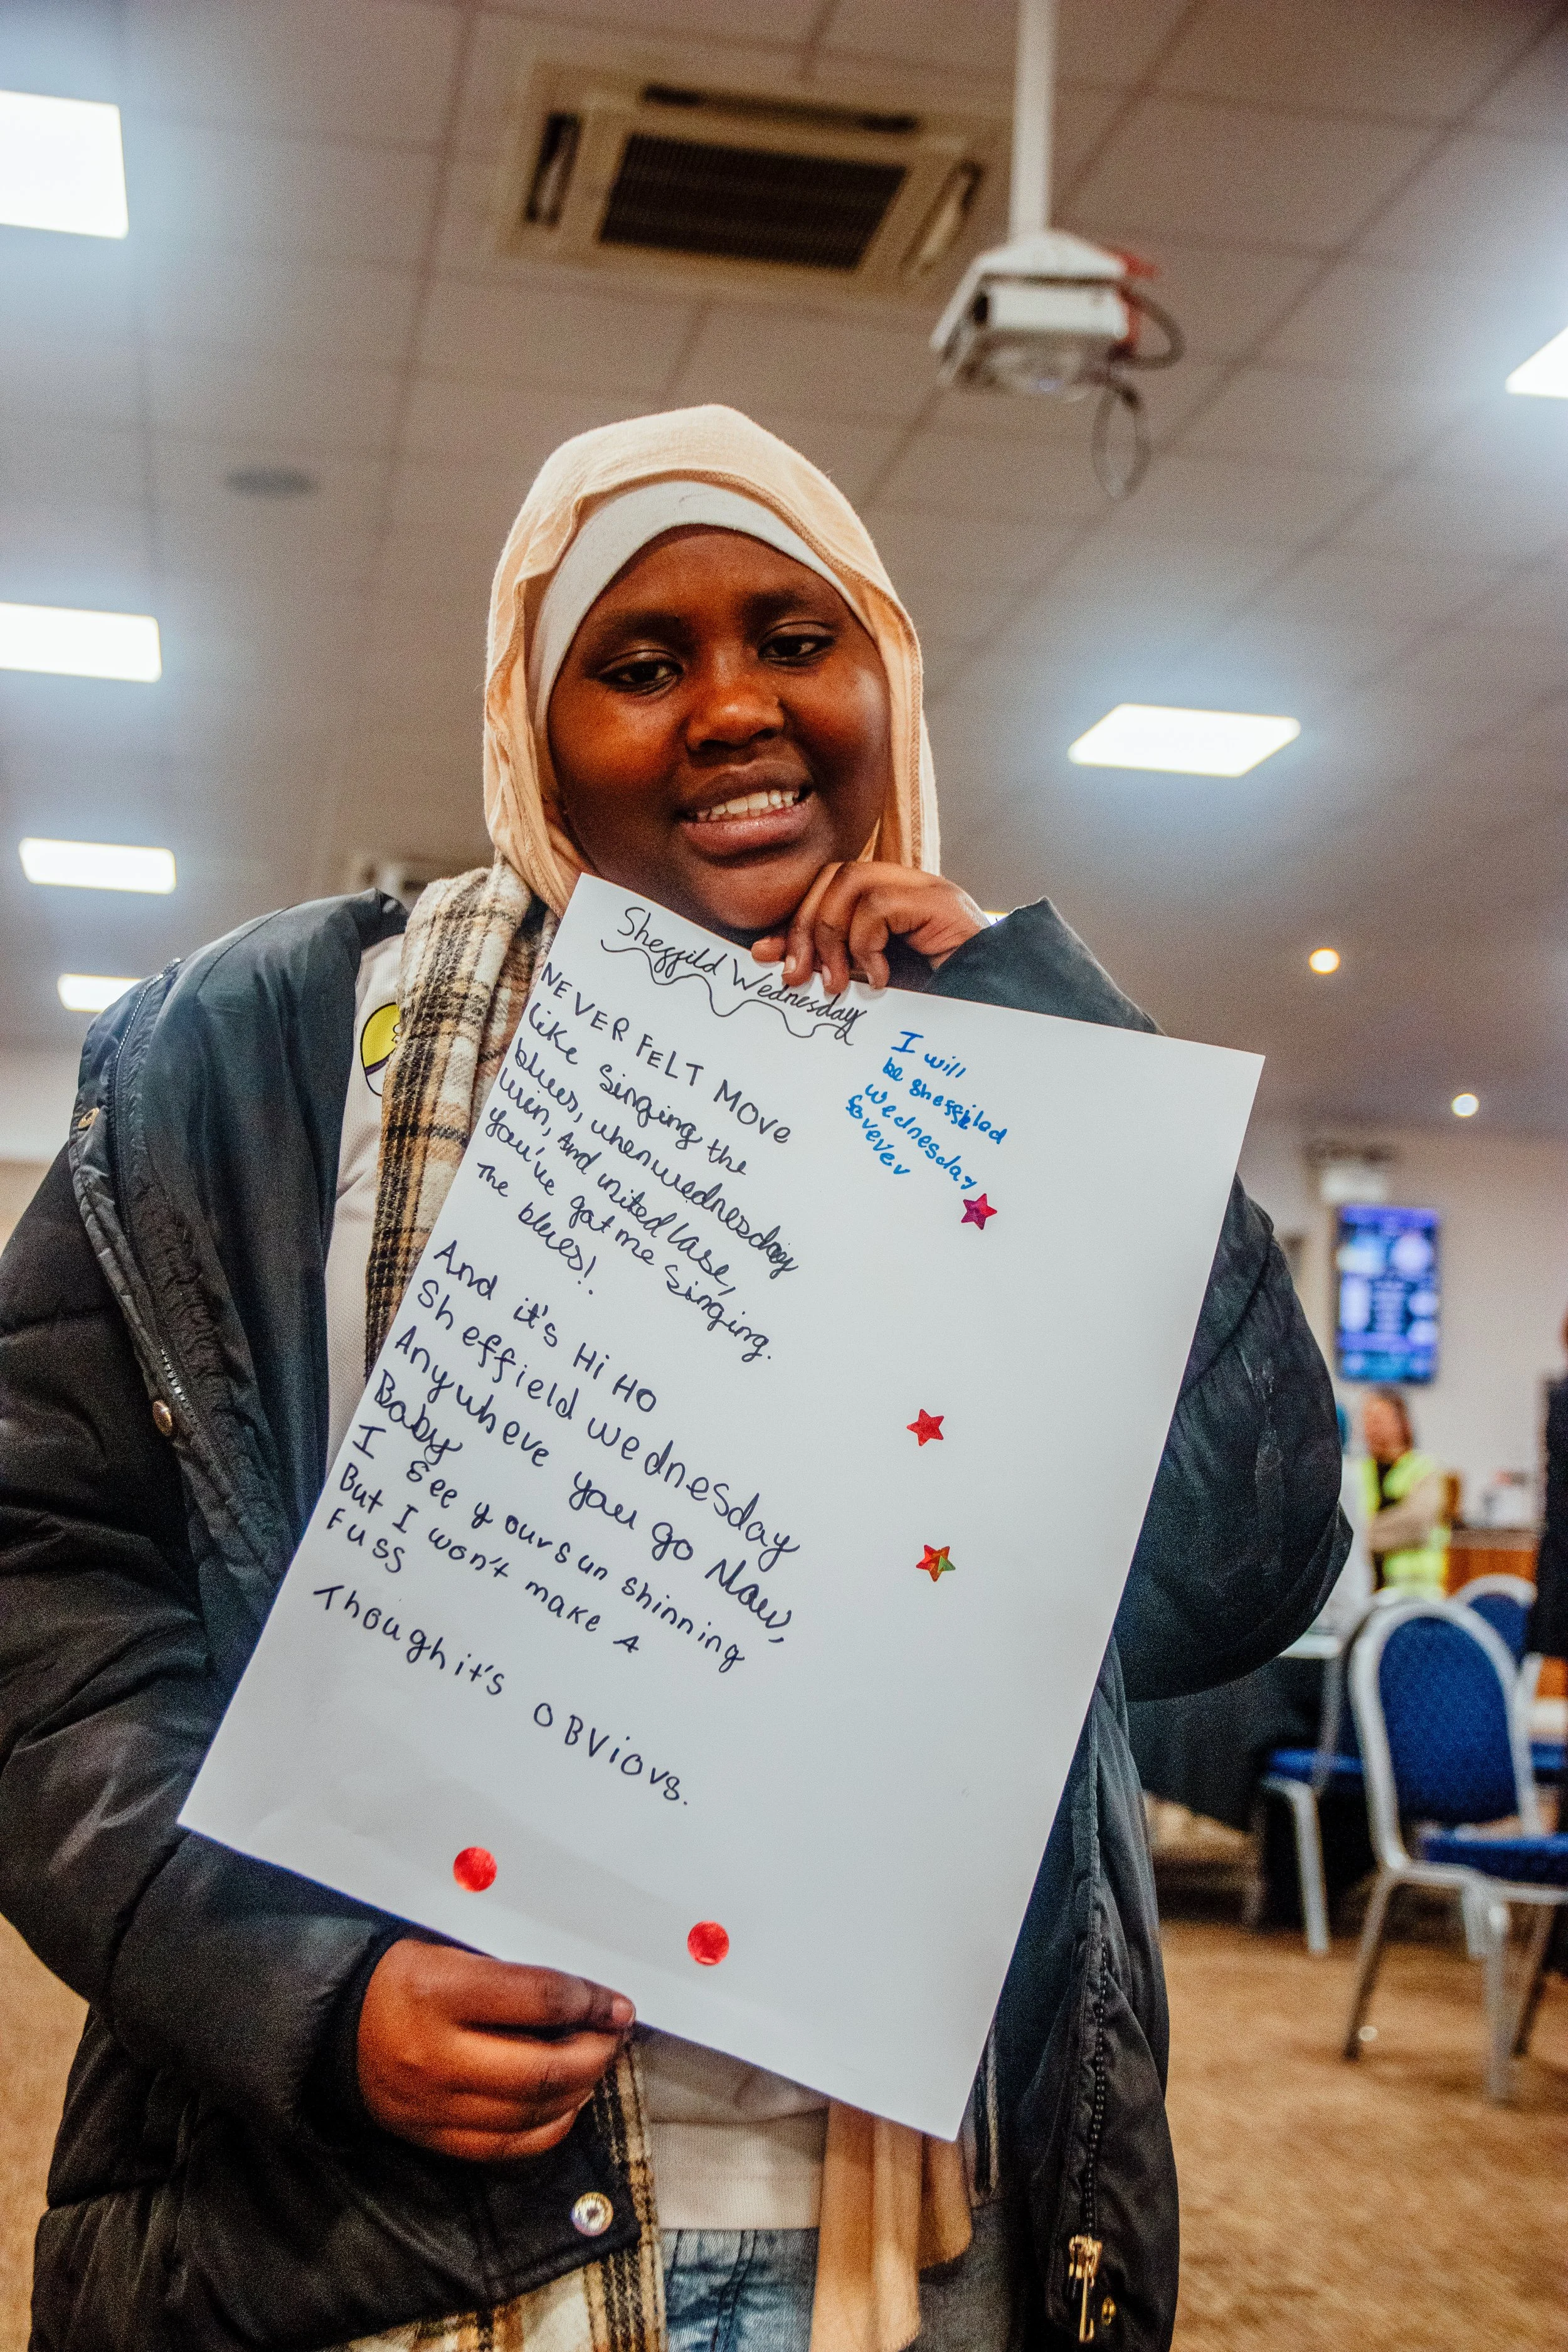 Sheffild Wednesday
NEVER FELT MOVE
like singing the
blues, when wednesday
win, And united lase,
you've gat me singing.
The blues!
And it's Hi HO
Sheffield wednesday
Anywheve you go Now,
Baby
I see yoursun shinning
But I won't make A
Fuss
Thoughit's OBViovs.
I will
be sheffiled
wednesday
fovever